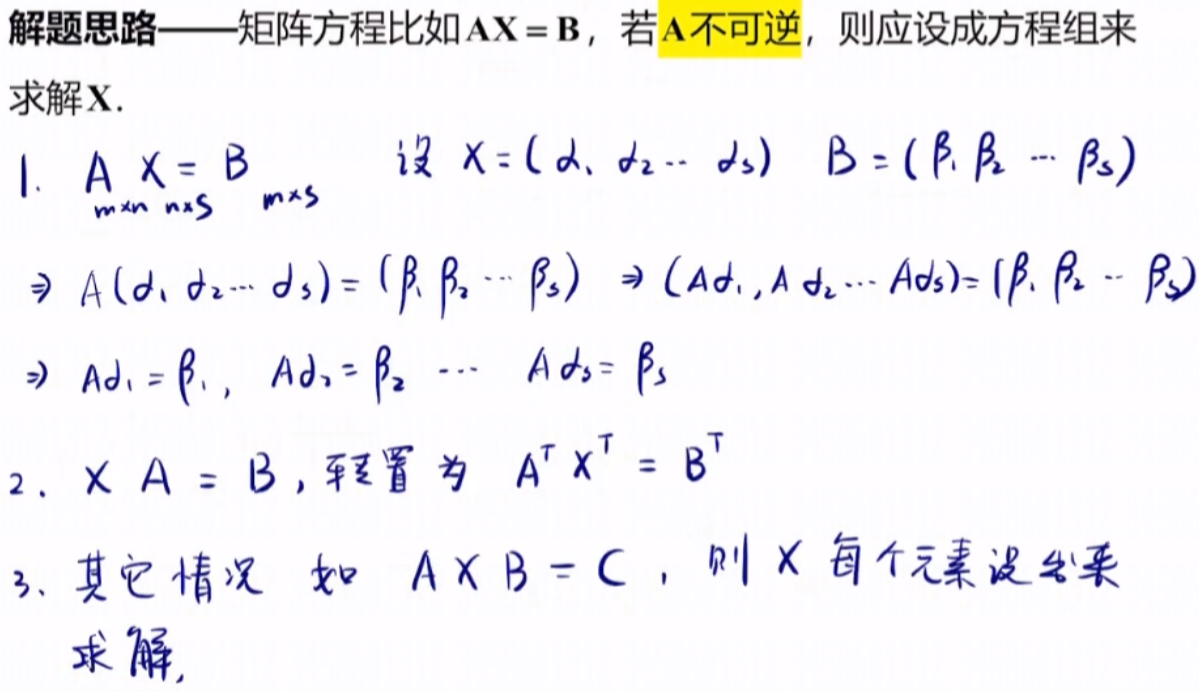 解题思路——矩阵方程比如AX=B，若A不可逆，则应设成方程组来
求解X.
1. A X = B 设 X=(α₁ α₂ ·· αₛ) B=(β₁ β₂ ··· βₛ)
m×n n×s m×s
⇒ A(α₁ α₂ ··· αₛ)=(β₁ β₂ ··· βₛ) ⇒ (Aα₁, Aα₂ ··· Aαₛ)=(β₁ β₂ ·· βₛ)
⇒ Aα₁=β₁, Aα₂=β₂ ··· Aαₛ=βₛ
2. X A = B, 转置为 Aᵀ Xᵀ = Bᵀ
3、其它情况 如 A X B = C, 则 X 每个元素设出来
求解,